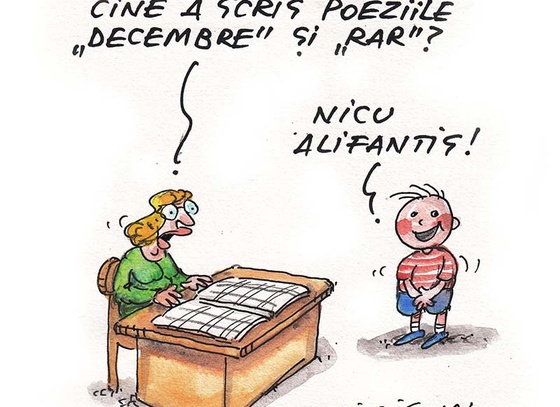 CINE A SCRIS POEZIILE
„DECEMBRE" ȘI „RAR"?
NICU
ALIFANTIS!